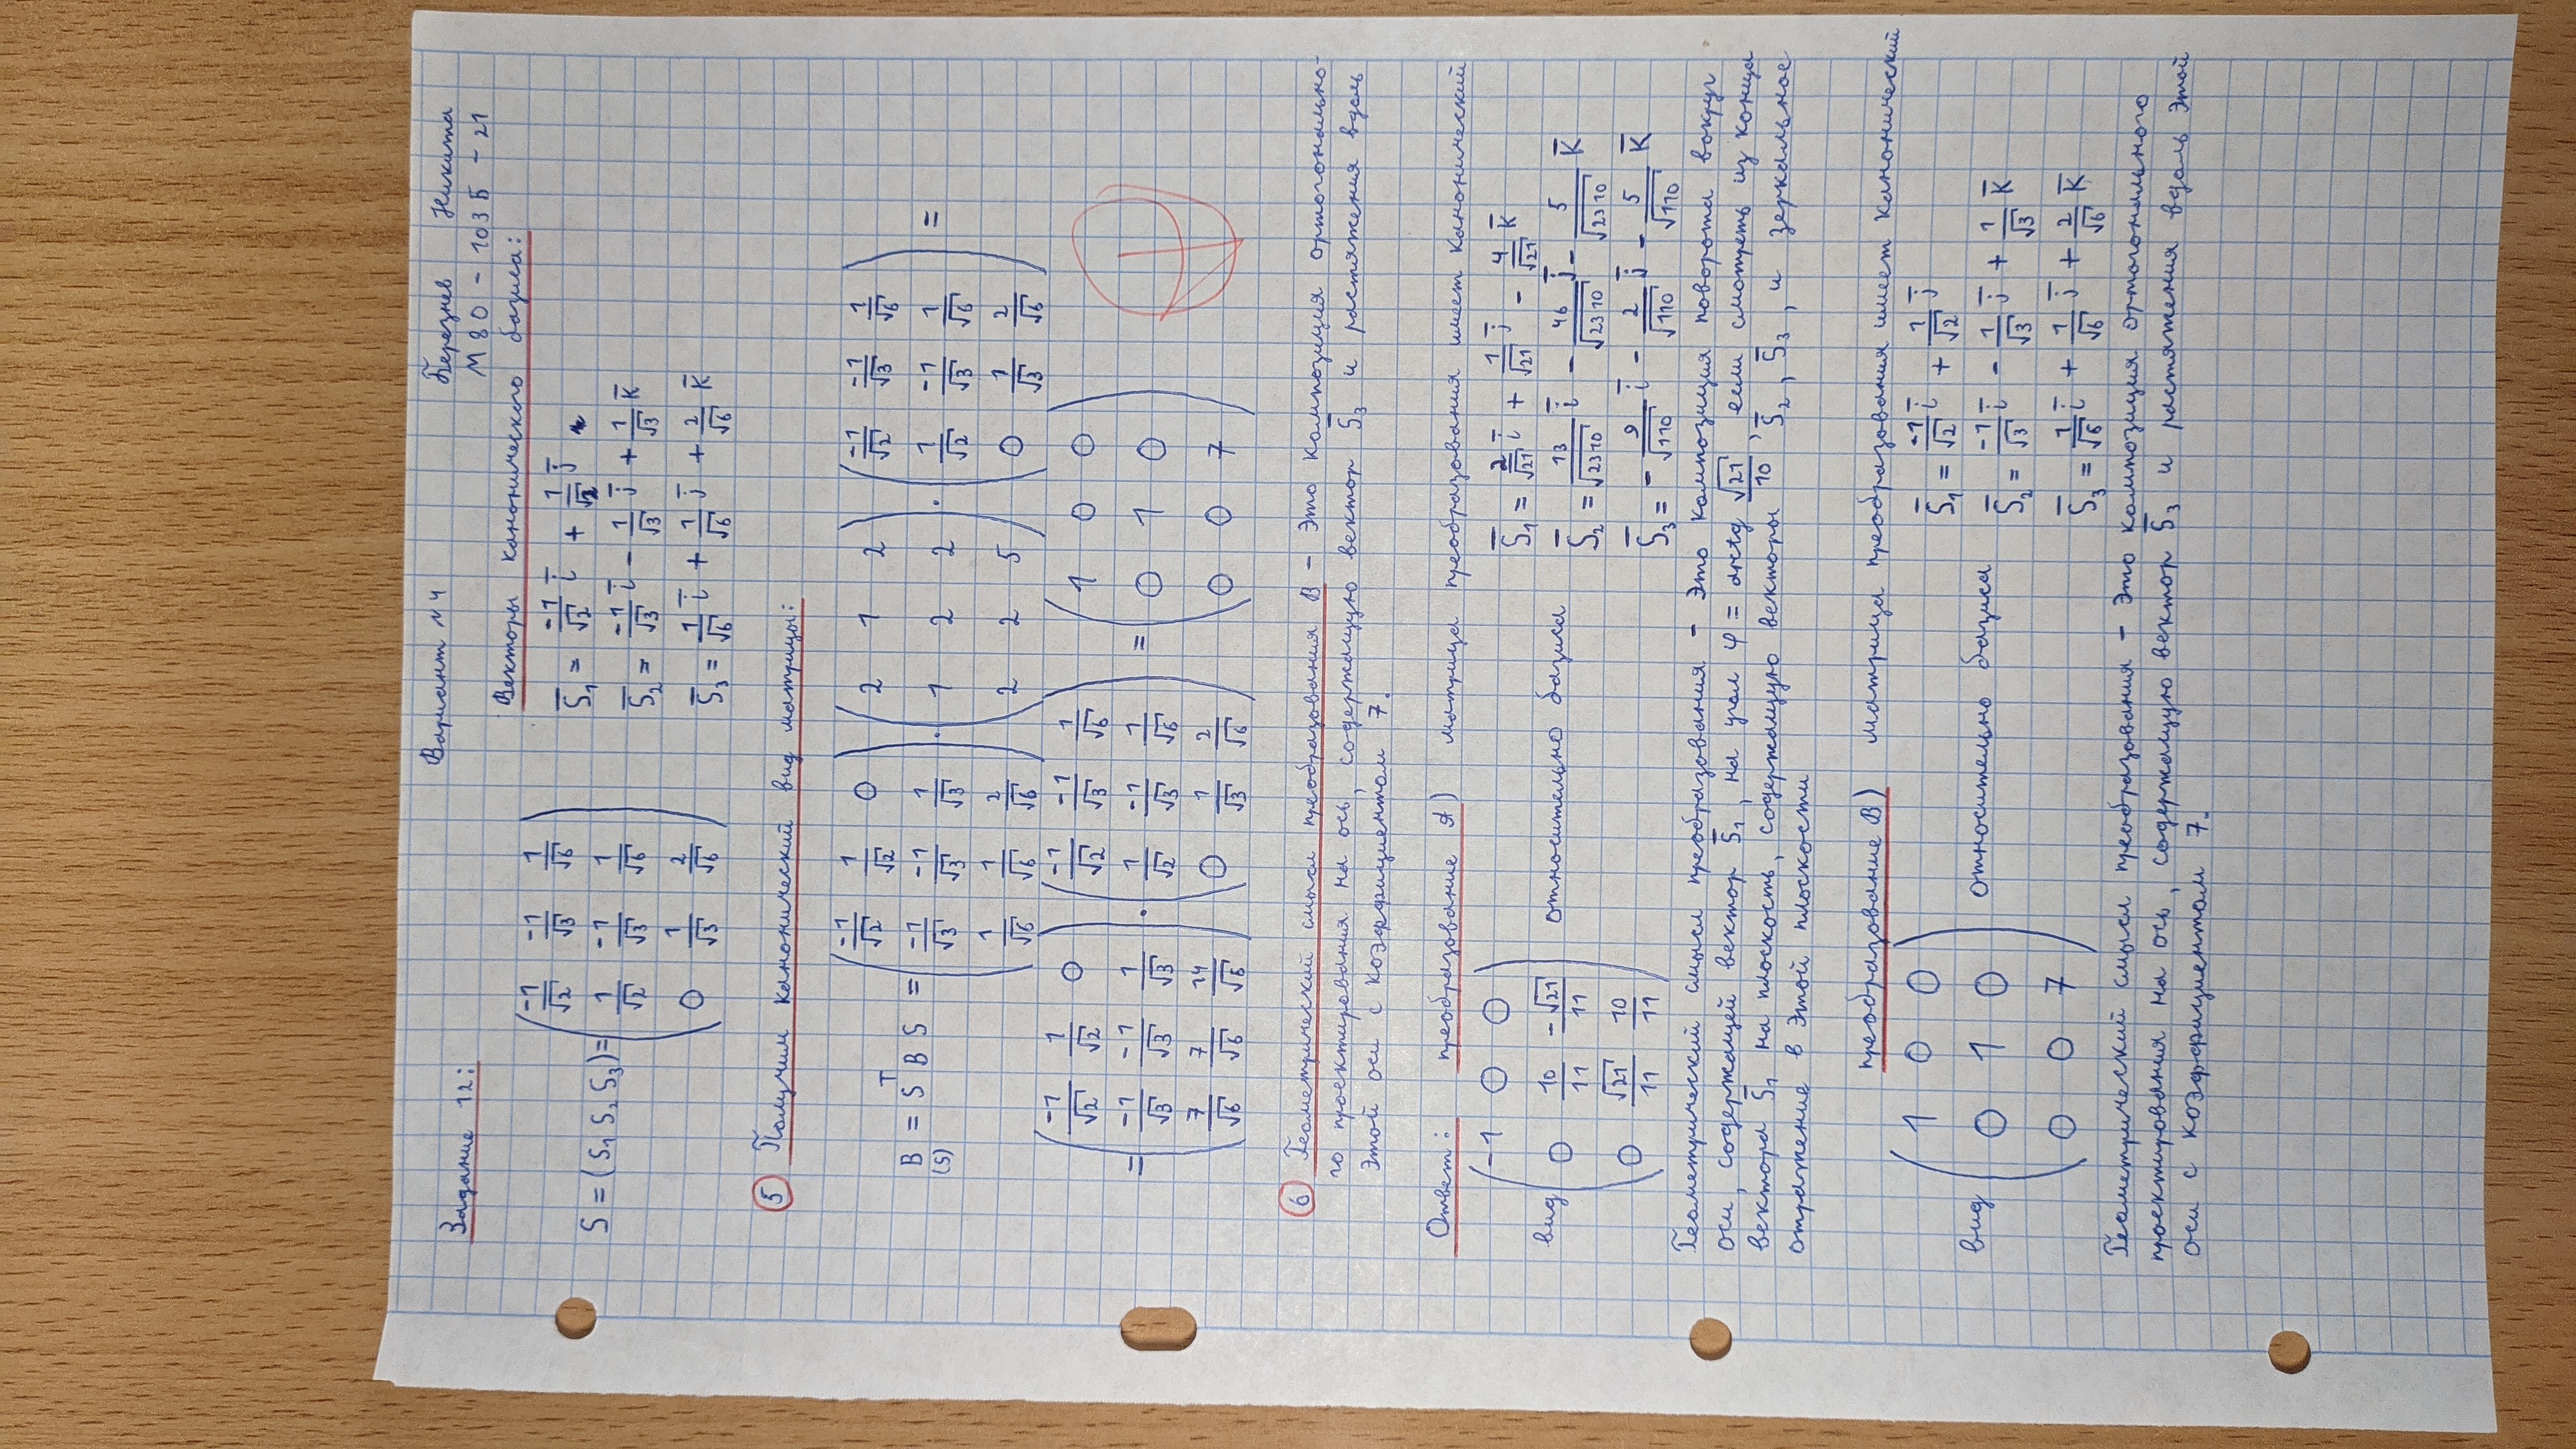 Вариант №4
Березнев Никита
Задание 12:
М80 - 103Б - 21
Векторы канонического базиса:
S = (S₁ S₂ S₃) = ( -1/√2 -1/√3 1/√6
1/√2 -1/√3 1/√6
0 1/√3 2/√6 )
S̄₁ = -1/√2 ī + 1/√2 j̄
S̄₂ = -1/√3 ī - 1/√3 j̄ + 1/√3 k̄
S̄₃ = 1/√6 ī + 1/√6 j̄ + 2/√6 k̄
5 Получим канонический вид матрицы:
B(S) = Sᵀ B S = ( -1/√2 1/√2 0 ) · ( 2 1 2 ) · ( -1/√2 -1/√3 1/√6 ) =
( -1/√3 -1/√3 1/√3 ) ( 1 2 2 ) ( 1/√2 -1/√3 1/√6 )
( 1/√6 1/√6 2/√6 ) ( 2 2 5 ) ( 0 1/√3 2/√6 )
= ( -1/√2 1/√2 0 ) · ( -1/√2 -1/√3 1/√6 ) = ( 1 0 0 )
( -1/√3 -1/√3 1/√3 ) ( 1/√2 -1/√3 1/√6 ) ( 0 1 0 )
( 7/√6 7/√6 14/√6 ) ( 0 1/√3 2/√6 ) ( 0 0 7 )
6 Геометрический смысл преобразования B - Это композиция ортогонально-
го проектирования на ось, содержащую вектор S̄₃ и растяжения вдоль
этой оси с коэффициентом 7.
Ответ: преобразование A) матрица преобразования имеет канонический
вид ( -1 0 0
0 10/11 -√21/11
0 √21/11 10/11 ) относительно базиса
S̄₁ = 2/√21 ī + 1/√21 j̄ - 4/√21 k̄
S̄₂ = 13/√2310 ī - 46/√2310 j̄ - 5/√2310 k̄
S̄₃ = - 9/√110 ī - 2/√110 j̄ - 5/√110 k̄
Геометрический смысл преобразования - Это композиция поворота вокруг
оси, содержащей вектор S̄₁, на угол φ = arctg √21/10, если смотреть из конца
вектора S̄₁ на плоскость, содержащую векторы S̄₂, S̄₃, и зеркальное
отражение в этой плоскости
преобразование B) матрица преобразования имеет канонический
вид ( 1 0 0
0 1 0
0 0 7 ) относительно базиса
S̄₁ = -1/√2 ī + 1/√2 j̄
S̄₂ = -1/√3 ī - 1/√3 j̄ + 1/√3 k̄
S̄₃ = 1/√6 ī + 1/√6 j̄ + 2/√6 k̄
Геометрический смысл преобразования - Это композиция ортогонального
проектирования на ось, содержащую вектор S̄₃ и растяжения вдоль этой
оси с коэффициентом 7.